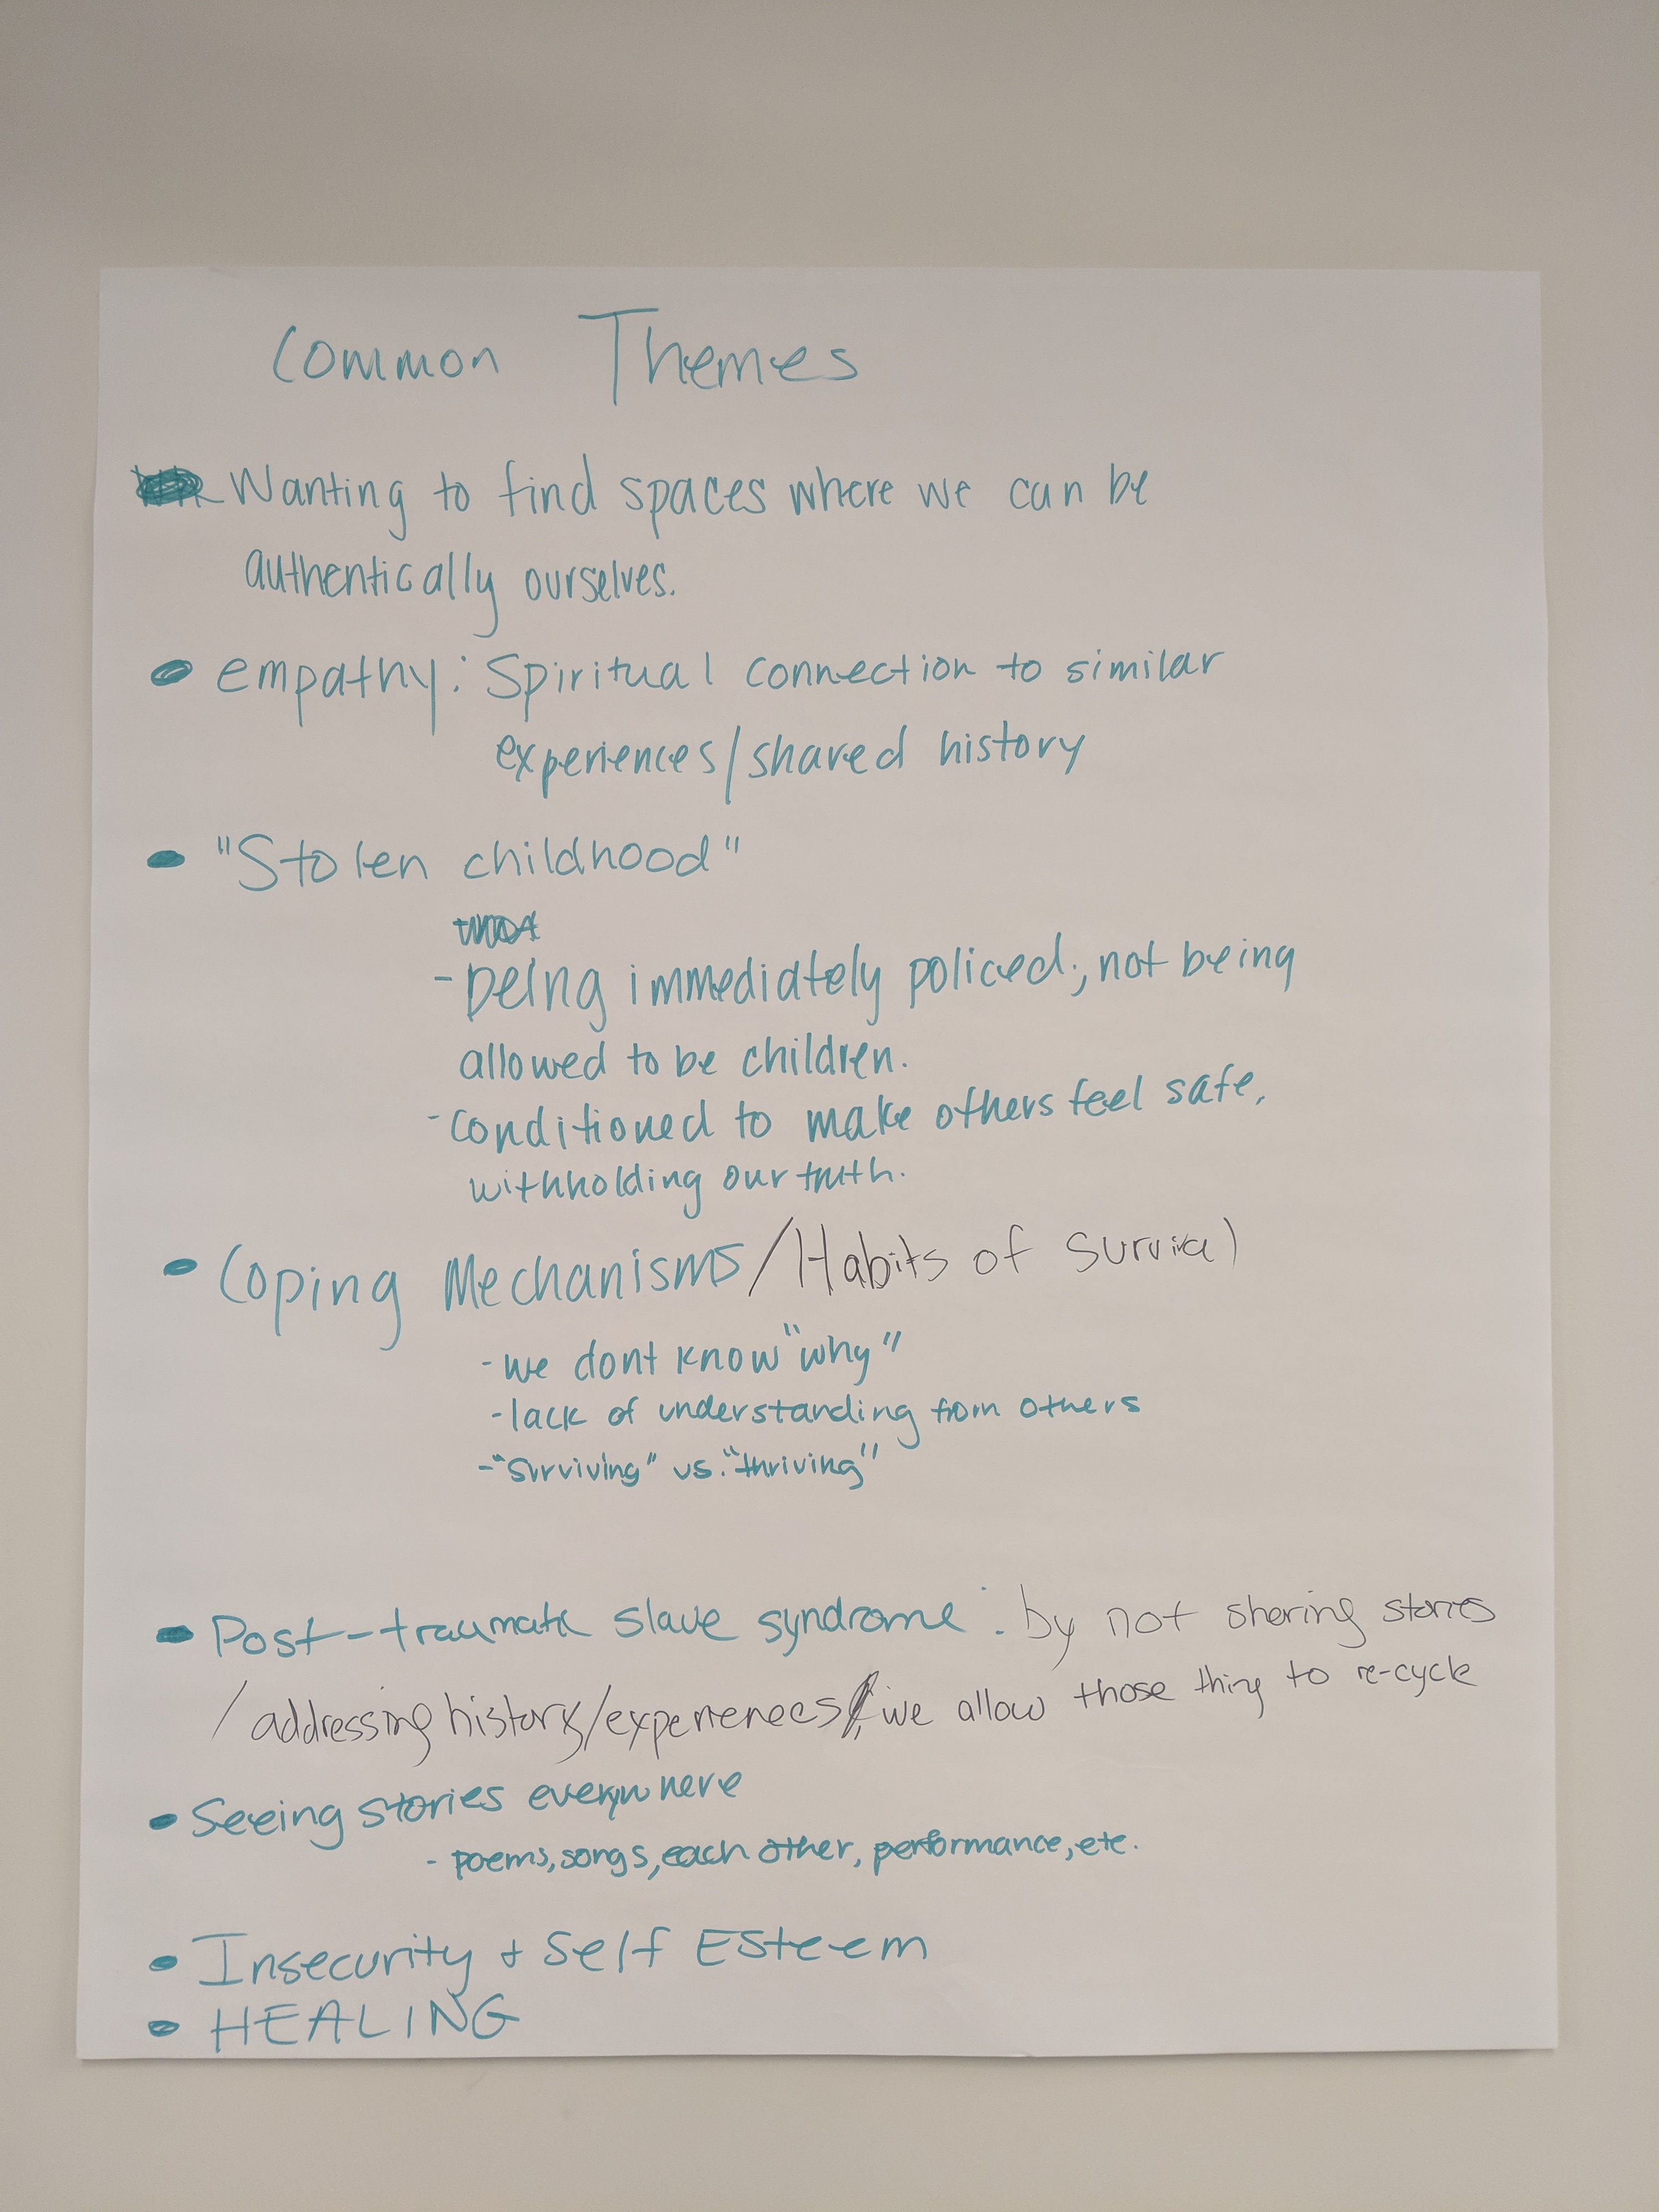 Common Themes
Wanting to find spaces where we can be
authentically ourselves.
• empathy: Spiritual connection to similar
experiences/shared history
• "Stolen childhood"
- being immediately policed; not being
allowed to be children.
- conditioned to make others feel safe,
withholding our truth.
• Coping Mechanisms/Habits of Survival
- we dont know "why"
- lack of understanding from others
- "surviving" vs. "thriving"
• Post-traumatic slave syndrome: by not sharing stories
/addressing history/experiences, we allow those thing to re-cycle
• Seeing stories everywhere
- poems, songs, each other, performance, etc.
• Insecurity + Self Esteem
• HEALING